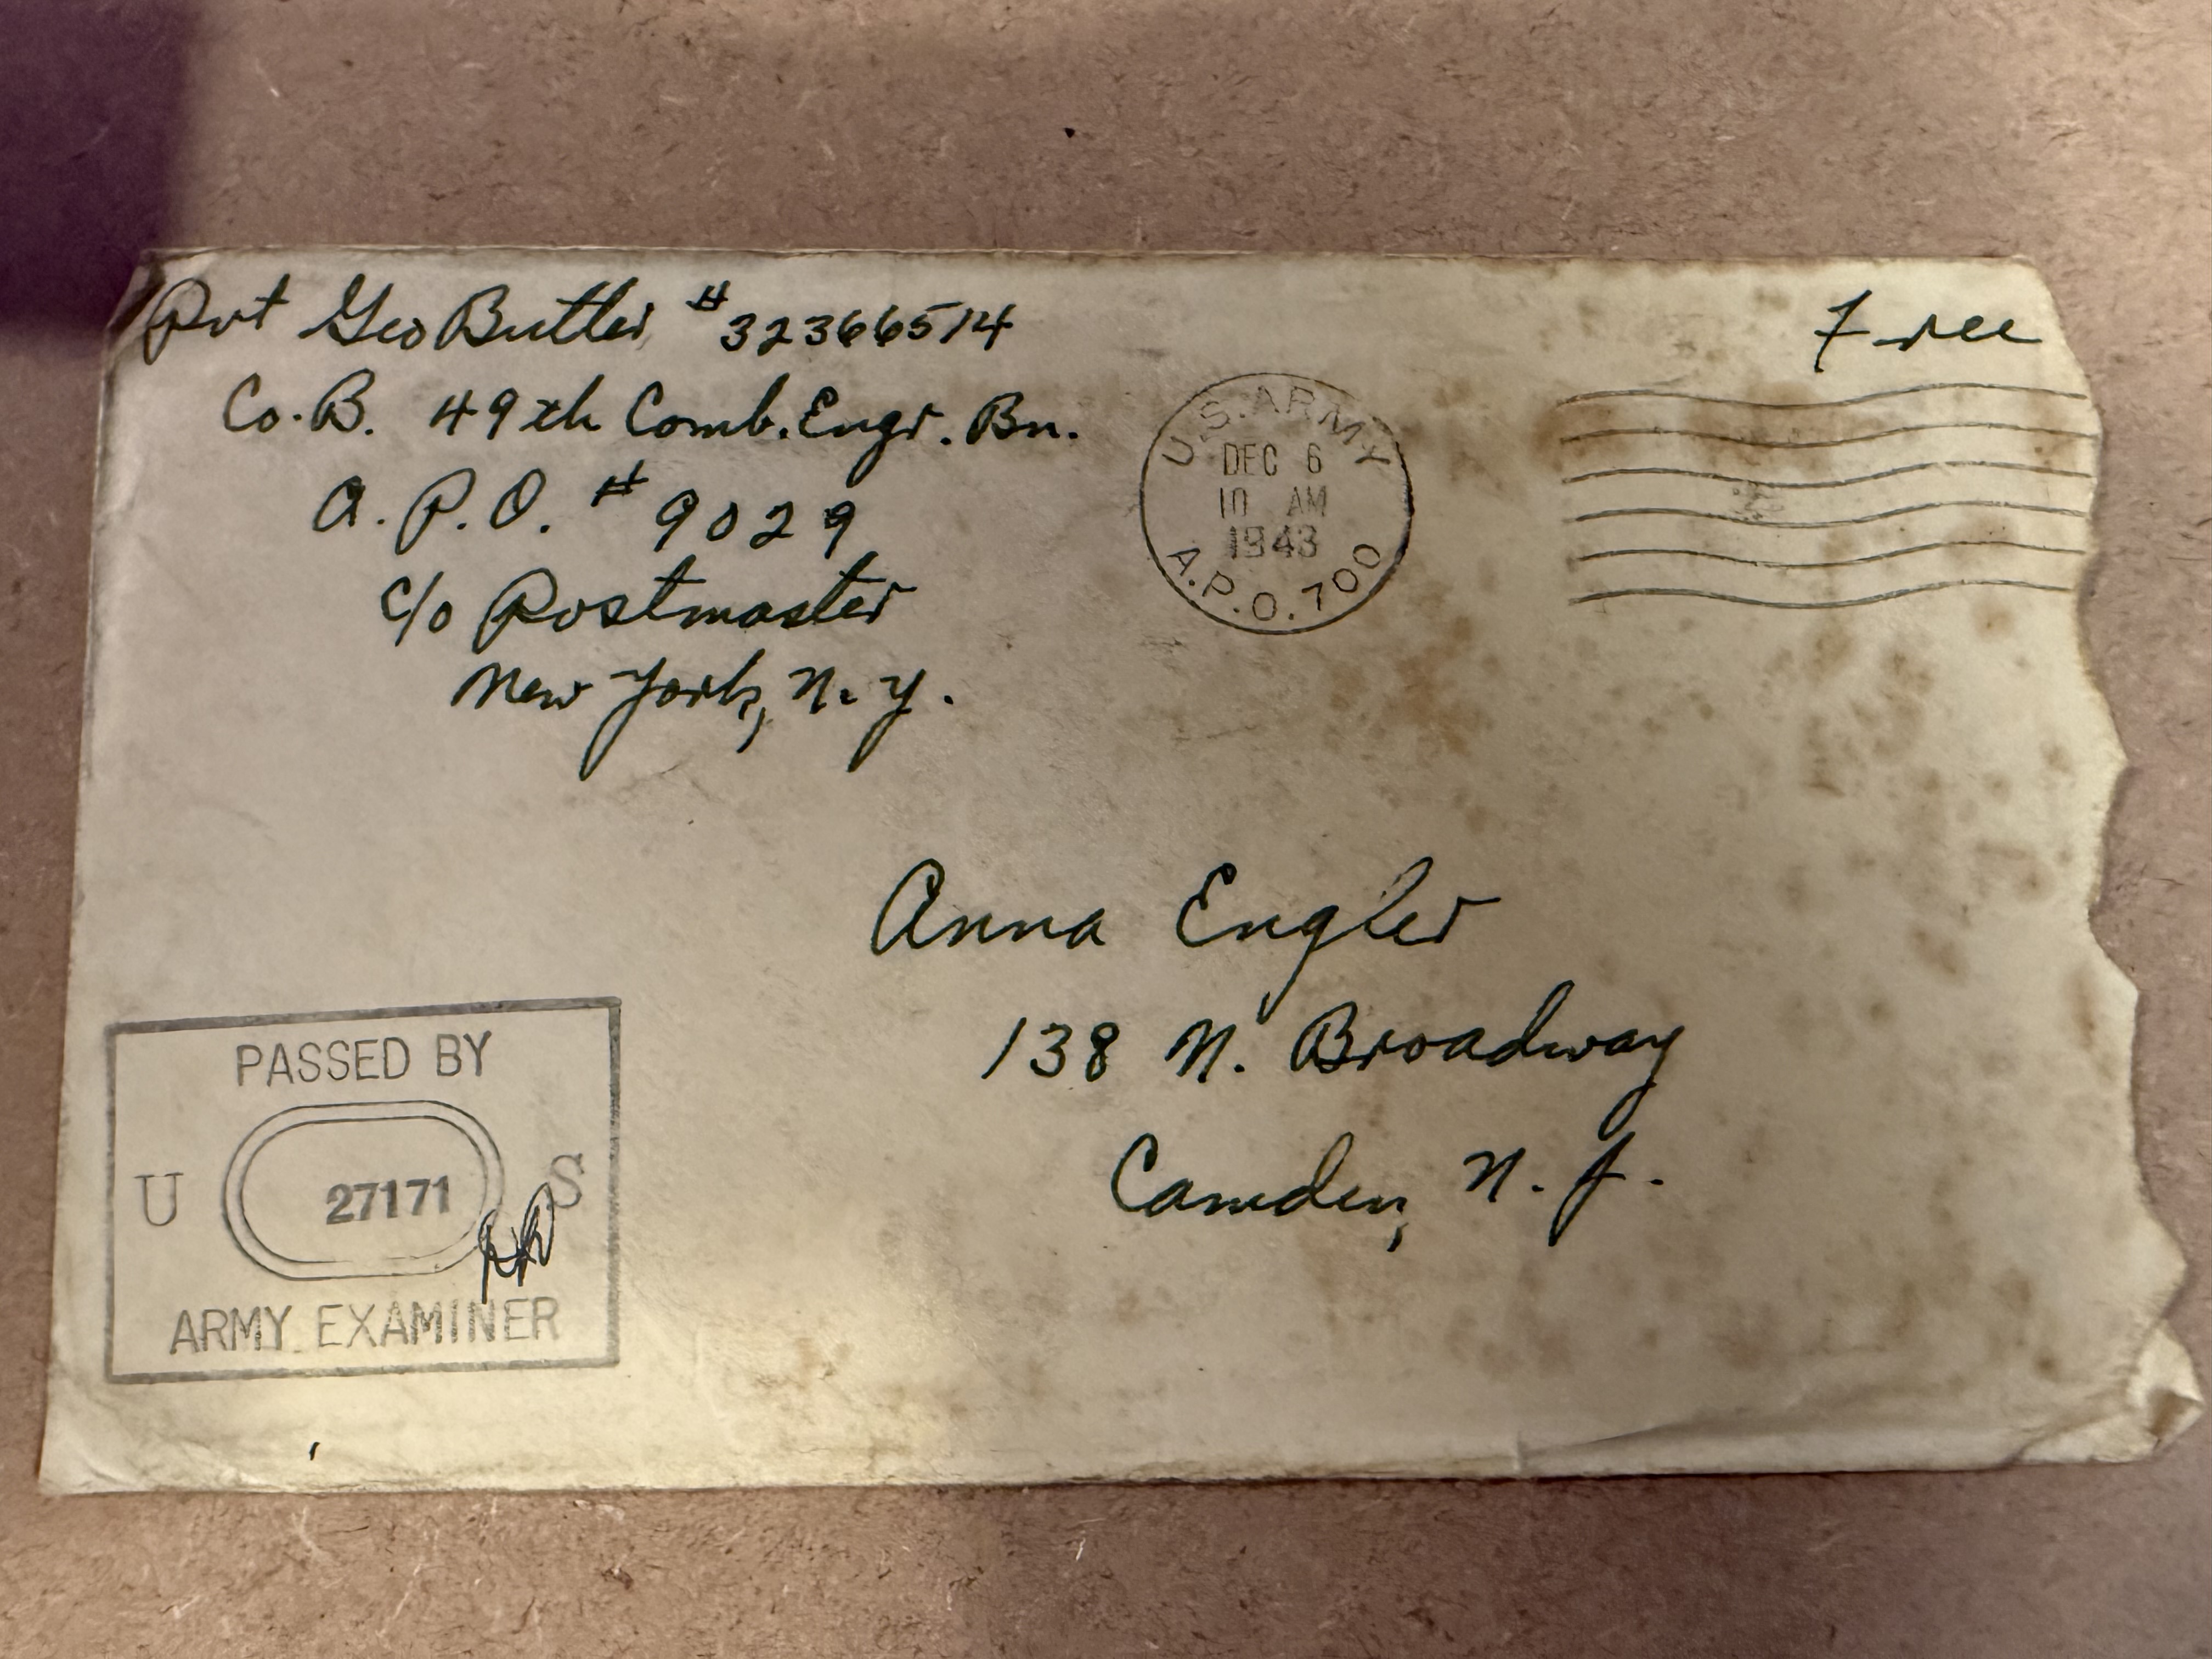 Pvt Geo Butler #32366514
Co. B. 49th Comb. Engr. Bn.
A.P.O. #9029
c/o Postmaster
New York, N.Y.
Free
U.S. ARMY
DEC 6
10 AM
1943
A.P.O. 700
Anna Engler
138 N. Broadway
Camden, N.J.
PASSED BY
U 27171 S
ARMY EXAMINER